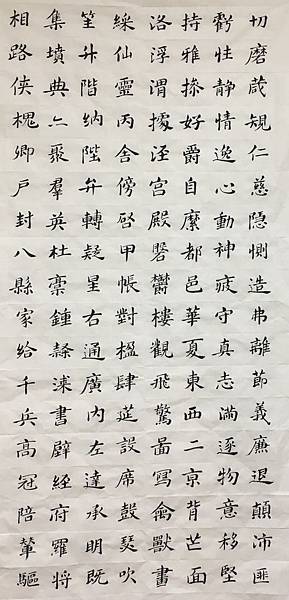 切磨葴規仁慈隐惻造弗離節義廉退顛沛匪
虧性静情逸心動神疲守真志滿逐物意移堅
持雅操好爵自縻都邑華夏東西二京背芒面
洛浮渭據涇宫殿磐鬱樓觀飛驚啚寫禽獸畫
綵仙靈丙舍傍啓甲帳對楹肆筵設席鼓瑟吹
笙升階納陛弁轉疑星右通廣内左達承明既
集墳典亦聚羣英杜稾鍾隸漆書壁經府羅將
相路俠槐卿戶封八縣家給千兵高冠陪輦驅